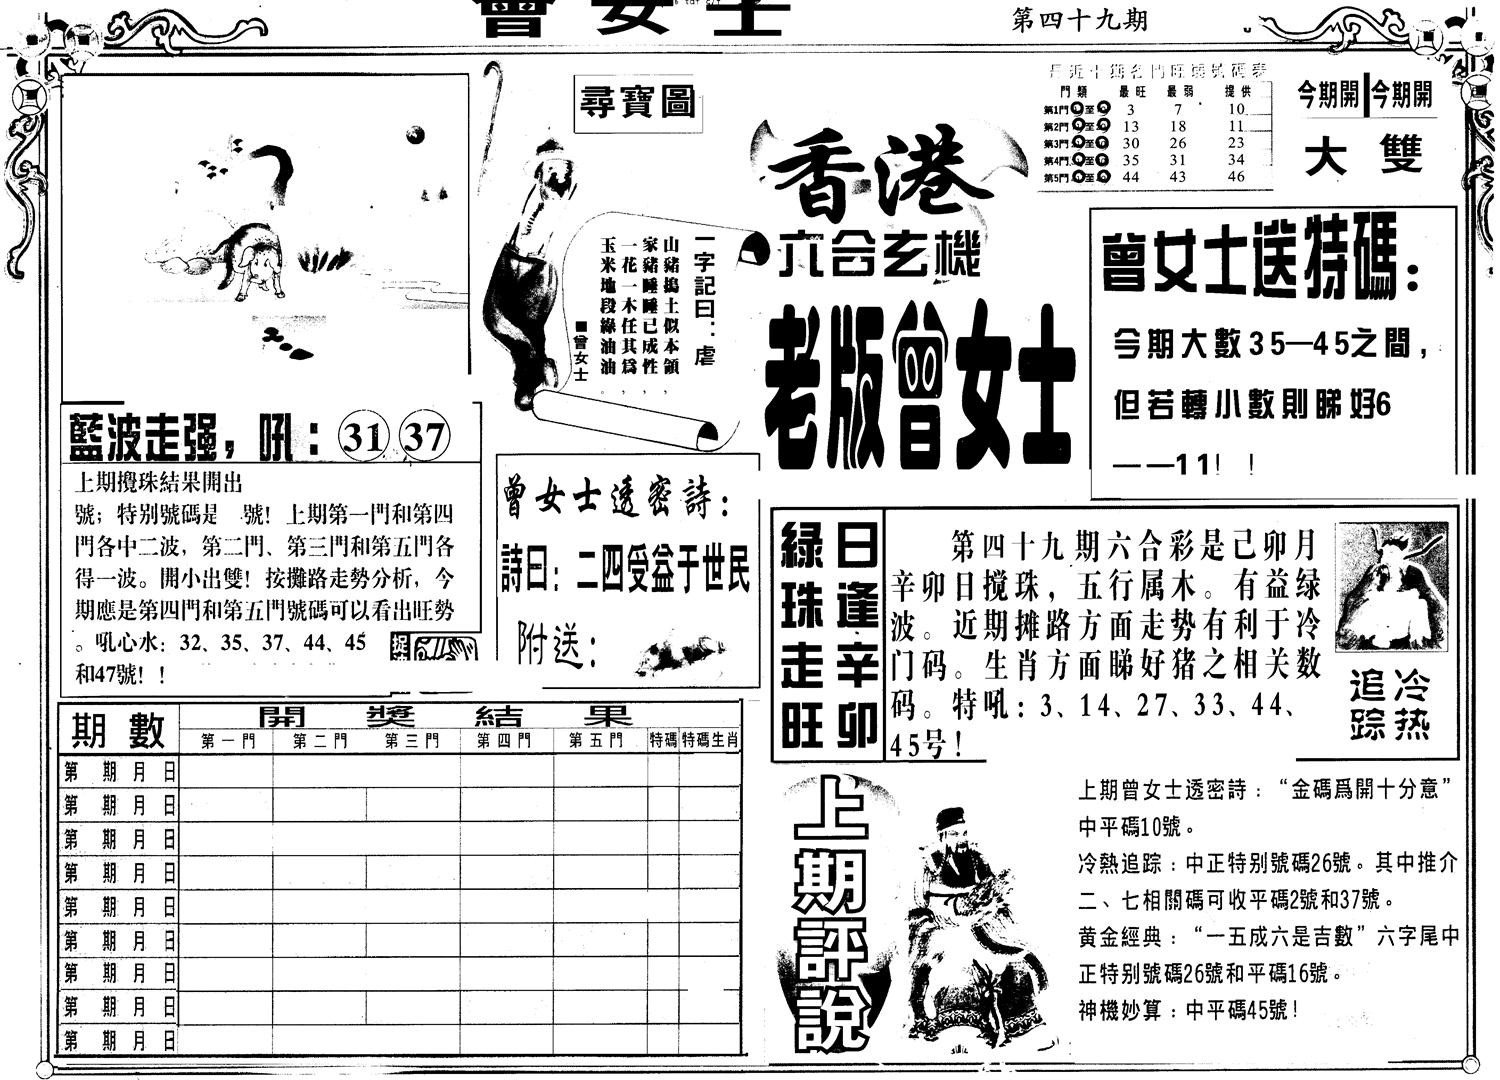 曾女士
第四十九期
尋寶圖
一字記曰：虐
山豬搗土似本領，
家豬睡睡已成性，
一花一木任其爲，
玉米地段綠油油。
■曾女士
香港
六合玄機
老版曾女士
最近十期各門旺弱號碼表
門類 最旺 最弱 提供
第1門 至 3 7 10
第2門 至 13 18 11
第3門 至 30 26 23
第4門 至 35 31 34
第5門 至 44 43 46
今期開 今期開
大 雙
曾女士送特碼：
今期大數35—45之間，
但若轉小數則睇好6
——11！！
藍波走强，吼：31 37
上期攪珠結果開出
號；特别號碼是 號！上期第一門和第四
門各中二波，第二門、第三門和第五門各
得一波。開小出雙！按攤路走勢分析，今
期應是第四門和第五門號碼可以看出旺勢
。吼心水：32、35、37、44、45
和47號！！
曾女士透密詩：
詩曰：二四受益于世民
附送：
日逢辛卯
綠珠走旺
第四十九期六合彩是己卯月
辛卯日搅珠，五行属木。有益绿
波。近期摊路方面走势有利于冷
门码。生肖方面睇好猪之相关数
码。特吼：3、14、27、33、44、
45号！
冷热
追踪
期數 開獎結果
第一門 第二門 第三門 第四門 第五門 特碼 特碼生肖
第 期 月 日
第 期 月 日
第 期 月 日
第 期 月 日
第 期 月 日
第 期 月 日
第 期 月 日
第 期 月 日
第 期 月 日
上期評說
上期曾女士透密詩：“金碼爲開十分意”
中平碼10號。
冷熱追踪：中正特别號碼26號。其中推介
二、七相關碼可收平碼2號和37號。
黄金經典：“一五成六是吉數”六字尾中
正特别號碼26號和平碼16號。
神機妙算：中平碼45號！